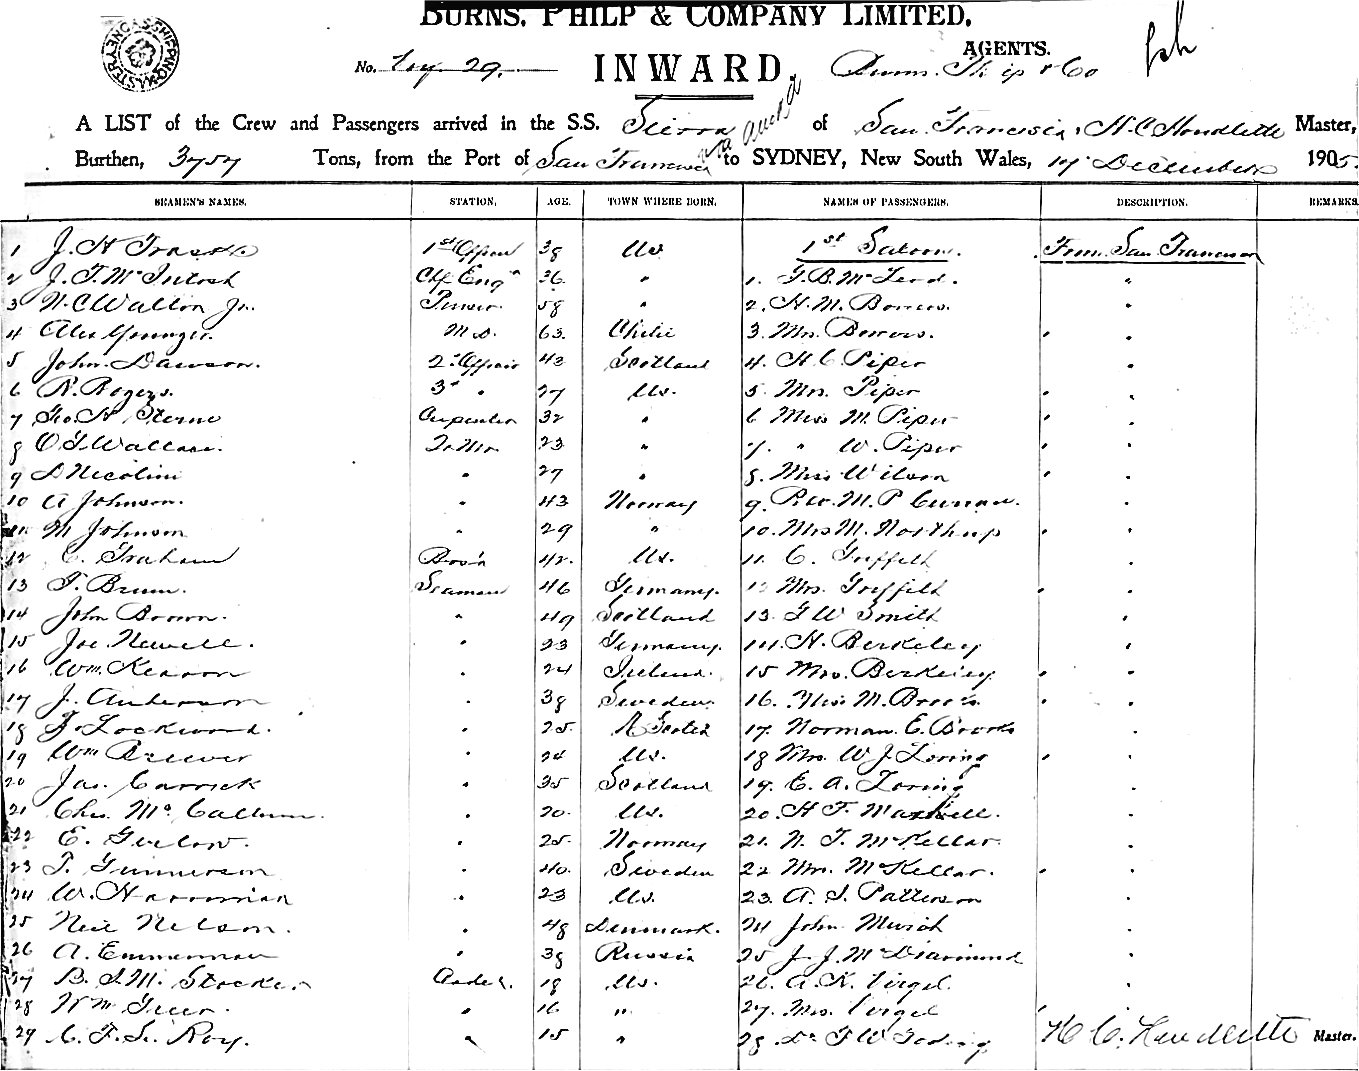 BURNS, PHILP & COMPANY LIMITED.
AGENTS.
No. Voy 29. INWARD. Burns Philp & Co
A LIST of the Crew and Passengers arrived in the S.S. Sierra via Auckd of San Francisco, H. C. Houdlette Master,
Burthen, 3757 Tons, from the Port of San Francisco to SYDNEY, New South Wales, 17 December 1905.
SEAMEN'S NAMES. STATION. AGE. TOWN WHERE BORN. NAMES OF PASSENGERS. DESCRIPTION. REMARKS.
1 J. H. 1st Officer 38 US 1st Saloon. From San Francisco
2 J. T. McIntosh Chf Engr 36 " 1. McLeod. "
3 N. C. Walton Jr. Purser 58 " 2. H. M. Borrows. "
4 Alex Younger. M.D. 63 Chile 3. Mrs. Borrows. "
5 John Dawson. 2d Officer 43 Scotland 4. H. C. Piper "
6 R. Rogers. 3d " 27 US. 5. Mrs. Piper "
7 Geo. H. Sterne Carpenter 32 " 6 Miss M. Piper "
8 Wallace. Qr Mr. 23 " 7. " W. Piper "
9 Nicolini " 27 " 8. Miss Wilson "
10 A Johnson. " 43 Norway 9. Rev. M. P. Curran. "
11 M Johnson " 29 " 10. Mrs M. Northup "
12 C. Graham Bos'n 42. US. 11. C. Griffith "
13 T. Brunn. Seaman 46 Germany. 12 Mrs. Griffith "
14 John Brown. " 49 Scotland 13. Smith "
15 Joe Newell. " 23 Germany. 14. H. Berkeley "
16 Wm. Kearon " 24 Ireland. 15 Mrs. Berkeley "
17 J. Anderson " 38 Sweden. 16. M. Brooks "
18 Lockwood. " 25 N Scotia 17. Norman E. Brooks "
19 Wm Brewer " 24 US. 18 Mrs. W. J. Loring "
20 Jas. Carrick " 35 Scotland 19. E. A. Loring "
21 Chas. McCallum. " 20. US. 20. H. T. Maxwell. "
22 E. " 25 Norway 21. N. T. McKellar. "
23 T. Gunnerson " 40. Sweden 22 Mrs. McKellar. "
24 W. Harriman " 23 US. 23. A. S. Patterson "
25 Neil Nelson. " 48 Denmark. 24 John "
26 A. Emmerman " 38 Russia 25 J. J. McDiarmid "
27 B. S. M. Stocker Cadet. 18 US. 26. A. K. Virgil "
28 Wm " 16 " 27. Mrs. Virgil "
29 C. F. Roy. " 15 " 28. Dr. H. C. Houdlette Master.